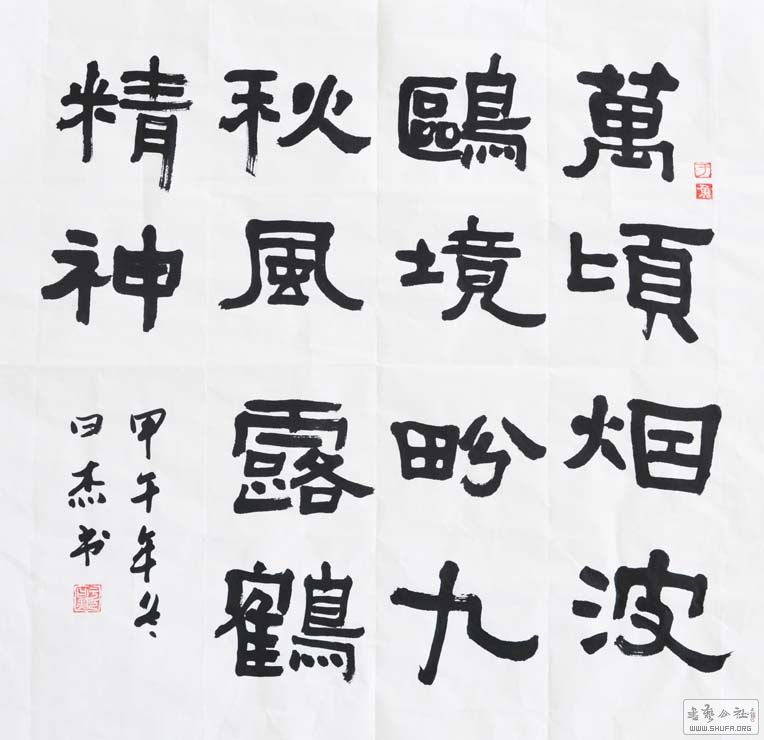 萬頃烟波
鷗境畍九
秋風露鶴
精神
甲午年冬
曰杰书
WWW.SHUFA.ORG